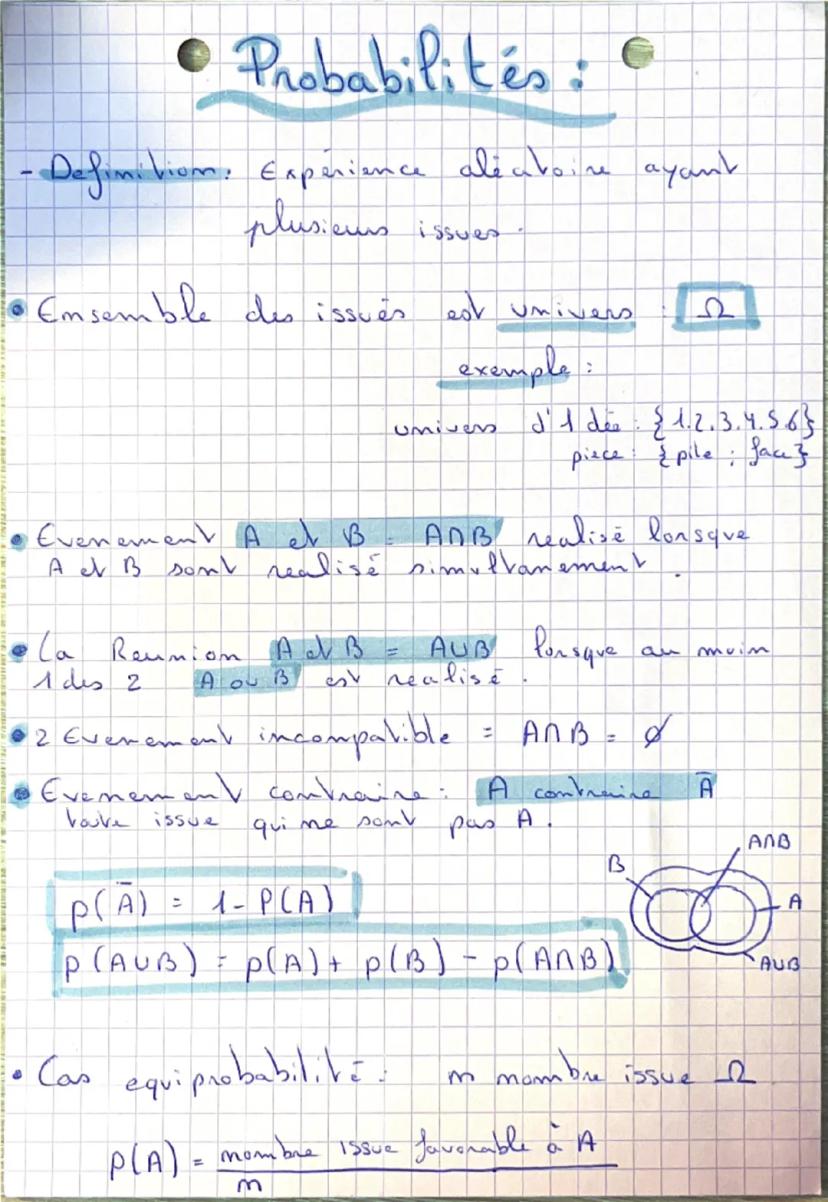 Probabilités :
- Definition : Expérience aléatoire ayant
plusieurs issues.
• Ensemble des issues est univers : Ω
exemple :
univers d'1 dée : {1.2.3.4.5.6}
piece : {pile ; face}
• Evenement A et B = A∩B realisé lorsque
A et B sont realisé simultanement.
• La Reunion A et B = A∪B lorsque au moin
1 des 2 A ou B est realisé.
• 2 Evenement incompatible = A∩B = ∅
• Evenement contraire : A contraire Ā
toute issue qui ne sont pas A.
A∩B
B
A
A∪B
p(Ā) = 1 - P(A)
p(A∪B) = p(A) + p(B) - p(A∩B)
• Cas equiprobabilité : n nombre issue Ω
p(A) = nombre issue favorable à A
n